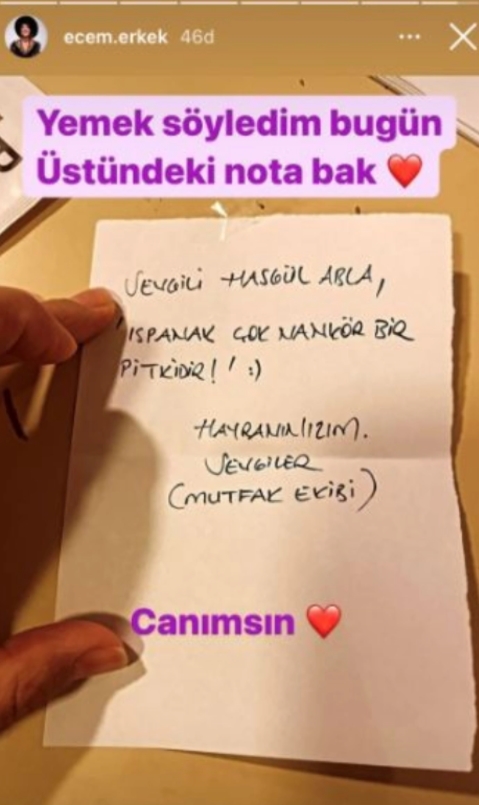 ecem.erkek 46d
Yemek söyledim bugün
Üstündeki nota bak ❤️
SEVGİLİ HASGÜL ABLA,
'ISPANAK ÇOK NANKÖR BİR
BİTKİDİR!' :)
HAYRANINIZIM.
SEVGİLER
(MUTFAK EKİBİ)
Canımsın ❤️